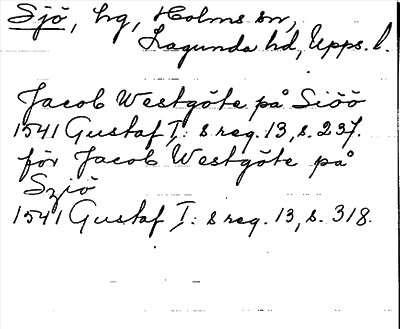 Sjö, hg, Holms sn,
Lagunda hd, Upps. l.
Jacob Westgöte på Siöö
1541 Gustaf I: s reg. 13, s. 237.
för Jacob Westgöte på
Szjö
1541 Gustaf I: s reg. 13, s. 318.